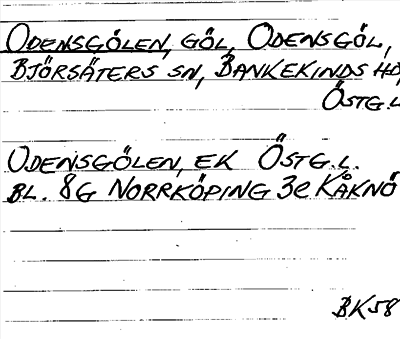 ODENSGÖLEN, GÖL, ODENSGÖL,
BJÖRSÄTERS SN, BANKEKINDS HD,
ÖSTG.L
ODENSGÖLEN, EK ÖSTG.L.
BL. 8G NORRKÖPING 3e KÅKNÖ
BK58